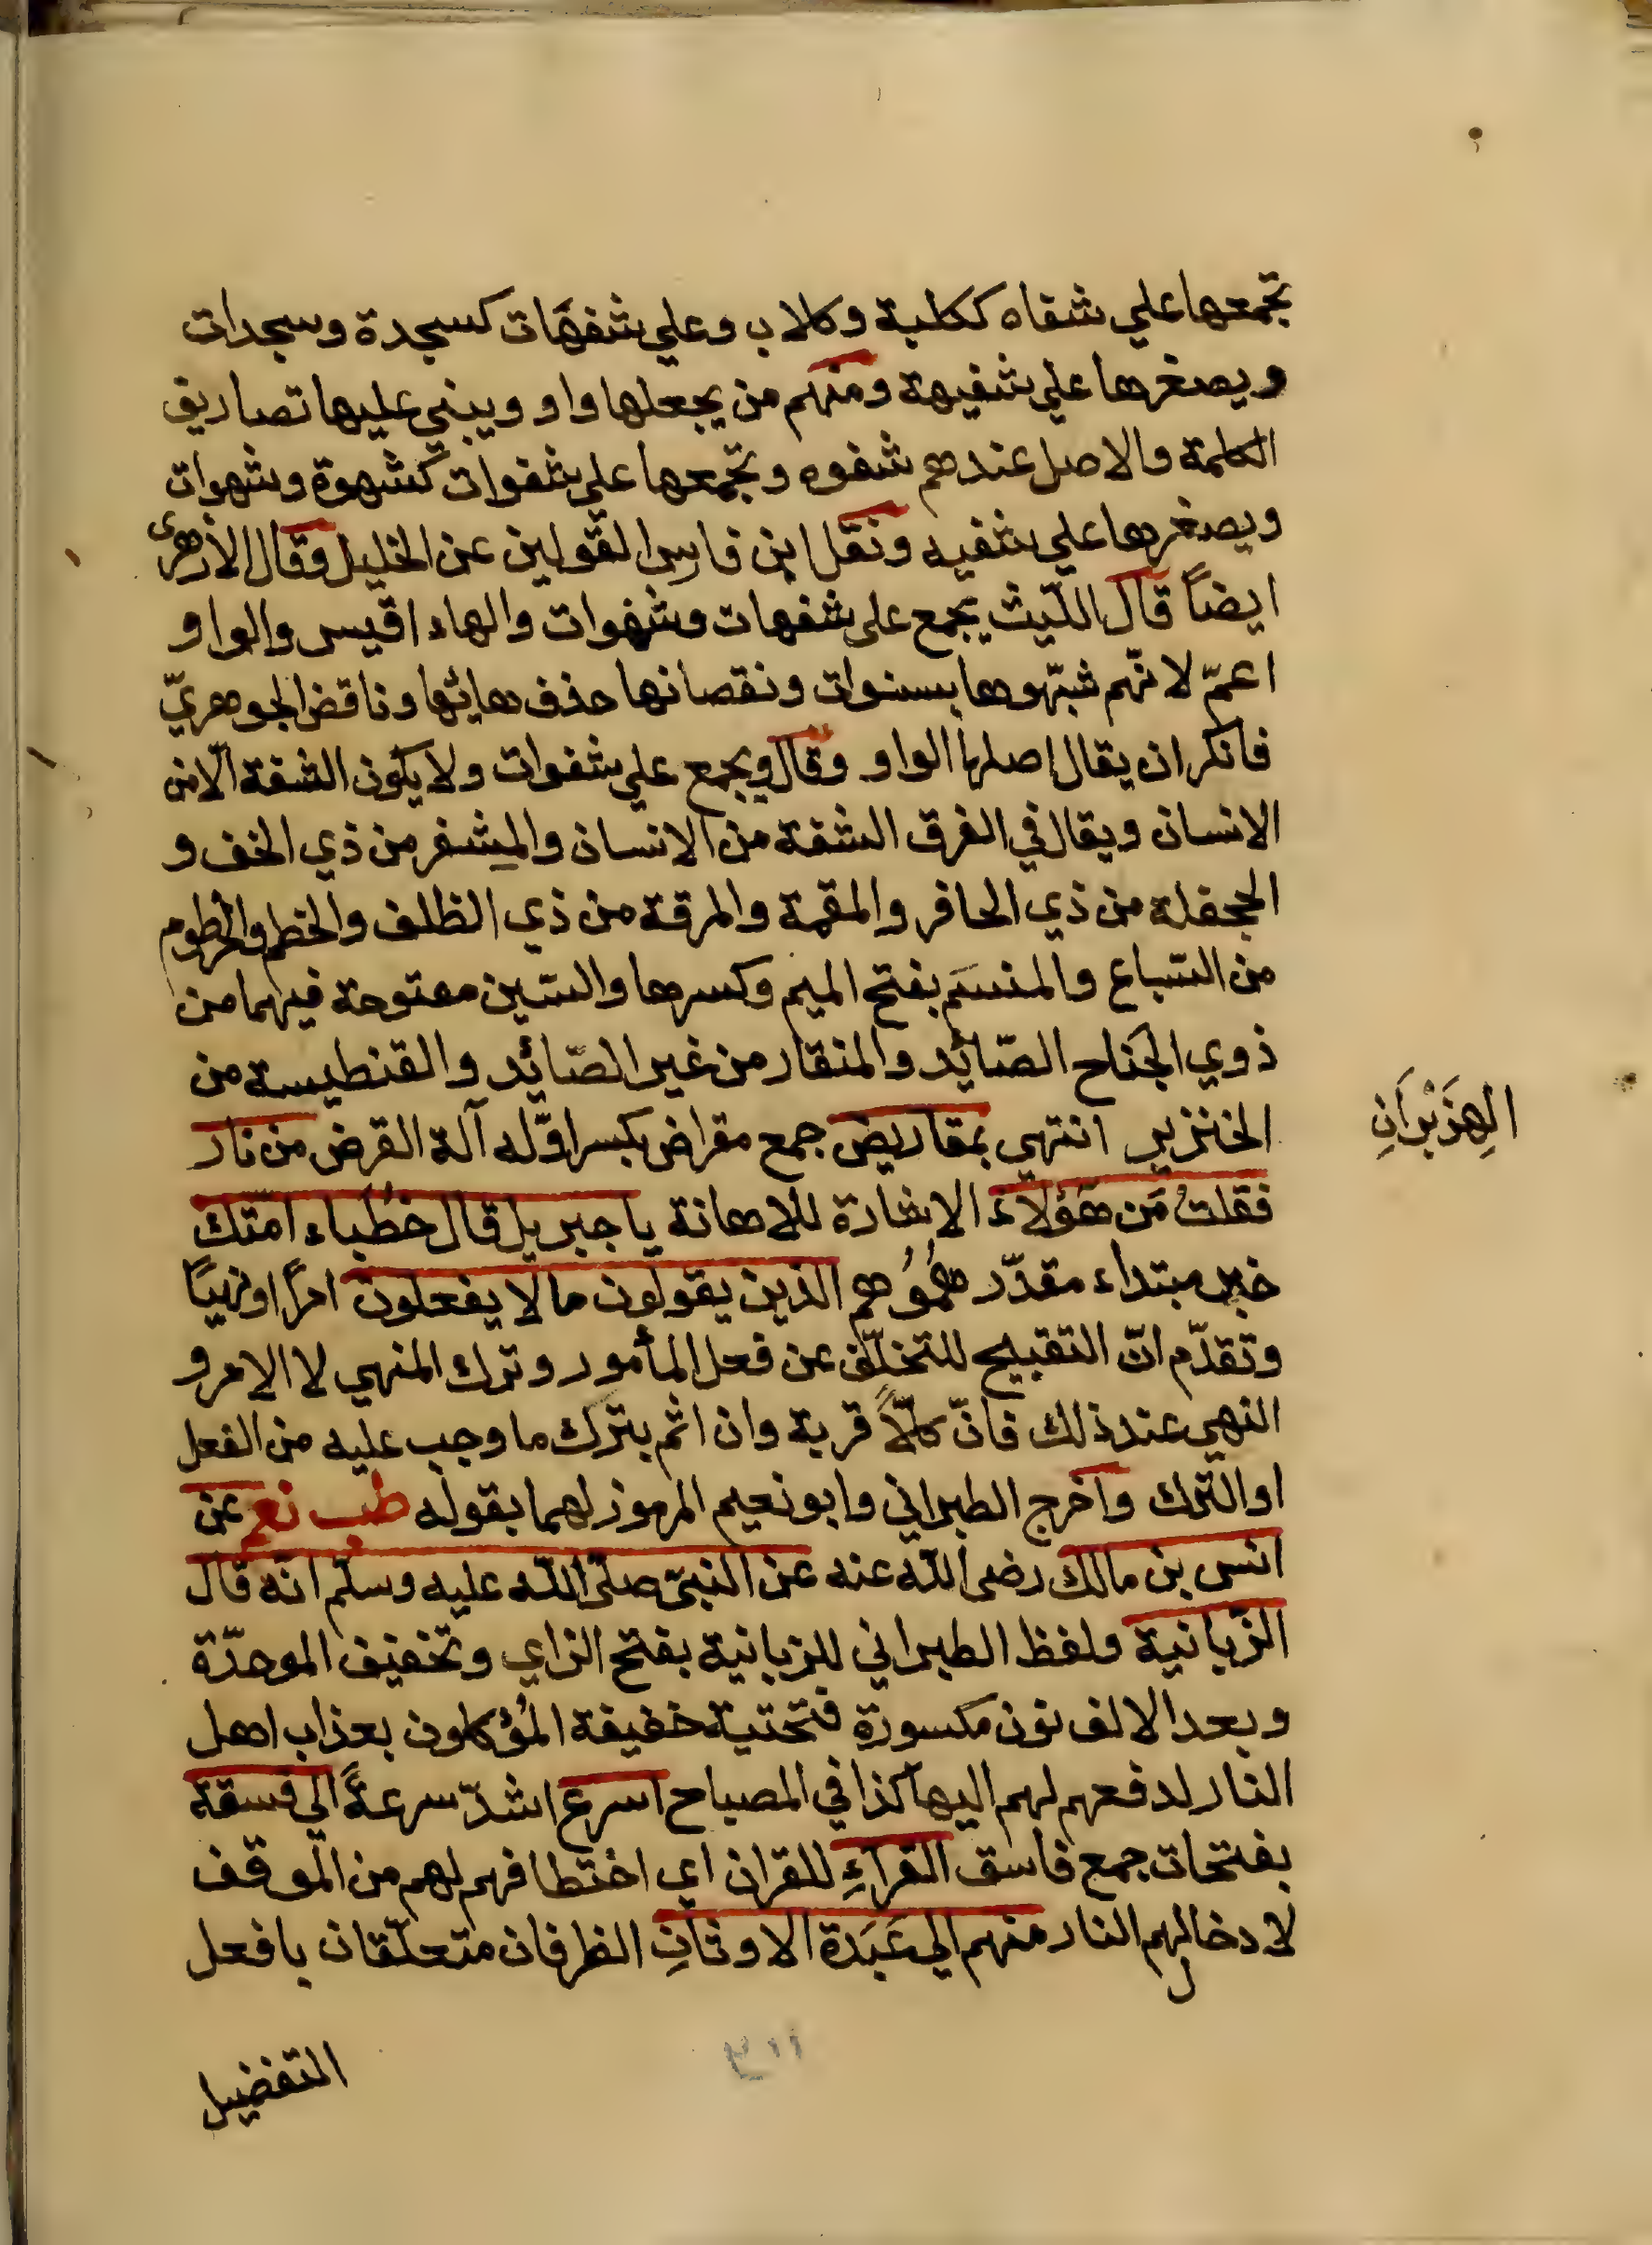 تجمعها علي شفاه ككلبة وكلاب وعلي شفهات كسجدة وسجدات
ويصغرها علي شفيهة ومنهم من يجعلها واو ويبني عليها تصاريف
الكلمة والاصل عندهم شفوه وتجمعها علي شفوات كشهوة وشهوات
ويصغرها علي شفيه ونقل ابن فارس القولين عن الخليل وقال الازهرى
ايضاً قال اللّيث يجمع على شفهات وشفهوات والهاء اقيس والواو
اعمّ لانّهم شبّهوها بسنوات ونقصانها حذف هائها وناقض الجوهريّ
فانكر ان يقال اصلها الواو وقال ويجمع علي شفوات ولا يكون الشفة الّا من
الانسان ويقال في الفرق الشفة من الانسان والمِشفر من ذي الخف و
الجحفلة من ذي الحافر والمقمة والمرقة من ذي الظلف والخطم والخرطوم
من السّباع والمنسَم بفتح الميم وكسرها والسّين مفتوحة فيهما من
ذوي الجناح الصّائد والمنقار من غير الصّائد والقنطيسة من
الخنزير انتهي بمقاريض جمع مقراض بكسر اوّله آلة القرض من نار
فقلتُ مَن هَؤلاءِ الاشارة للاهانة يا جبريل قال خُطَباء امّتك
خبر مبتداء مقدّر همُ وُهم الذين يقولون ما لا يفعلون امرًا او نهيًا
وتقدّم انّ التقبيح للتخلّف عن فعل المأمور وترك المنهي لا الامر و
النهي عند ذلك فانّ كلًّا قربة وان اثم بترك ما وجب عليه من الفعل
او الترك واخرج الطبراني وابو نعيم المرموز لهما بقوله طب نعم عن
انس بن مالك رضى اللّه عنه عن النبيّ صلّى اللّه عليه وسلّم انّه قال
الزّبانية ولفظ الطبراني للزبانية بفتح الزاي وتخفيف الموحدّة
وبعد الالف نون مكسورة فتحتية خفيفة المُؤكلون بعذاب اهل
النار لدفعهم لهم اليها كذا في المصباح اسرع اشدّ سرعةً الي فسقة
بفتحات جمع فاسق القرآءِ للقران اي اختطافهم لهم من الموقف
لادخالهم النار منهم الي عَبَدة الاوثانِ الظرفان متعلّقان بافعل
التفضيل
الهِزَبْرَانِ